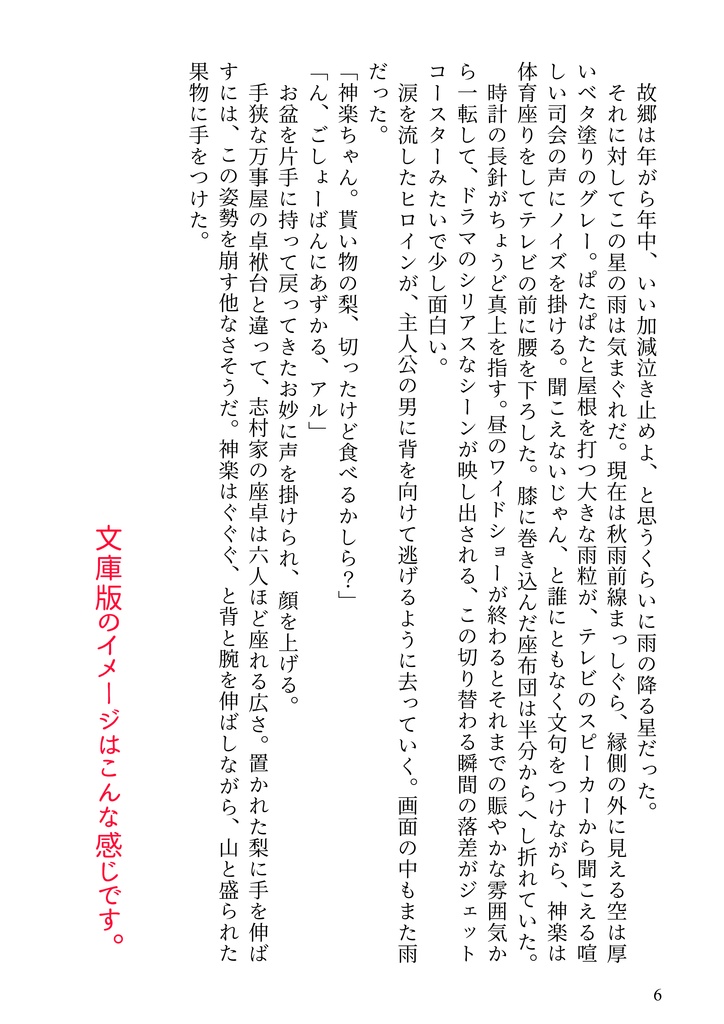 故郷は年がら年中、いい加減泣き止めよ、と思うくらいに雨の降る星だった。
それに対してこの星の雨は気まぐれだ。現在は秋雨前線まっしぐら、縁側の外に見える空は厚
いベタ塗りのグレー。ぱたぱたと屋根を打つ大きな雨粒が、テレビのスピーカーから聞こえる喧
しい司会の声にノイズを掛ける。聞こえないじゃん、と誰にともなく文句をつけながら、神楽は
体育座りをしてテレビの前に腰を下ろした。膝に巻き込んだ座布団は半分からへし折れていた。
時計の長針がちょうど真上を指す。昼のワイドショーが終わるとそれまでの賑やかな雰囲気か
ら一転して、ドラマのシリアスなシーンが映し出される、この切り替わる瞬間の落差がジェット
コースターみたいで少し面白い。
涙を流したヒロインが、主人公の男に背を向けて逃げるように去っていく。画面の中もまた雨
だった。
「神楽ちゃん。貰い物の梨、切ったけど食べるかしら？」
「ん、ごしょーばんにあずかる、アル」
お盆を片手に持って戻ってきたお妙に声を掛けられ、顔を上げる。
手狭な万事屋の卓袱台と違って、志村家の座卓は六人ほど座れる広さ。置かれた梨に手を伸ば
すには、この姿勢を崩す他なさそうだ。神楽はぐぐぐ、と背と腕を伸ばしながら、山と盛られた
果物に手をつけた。
文庫版のイメージはこんな感じです。
6